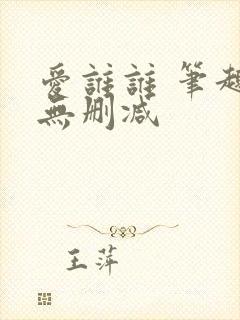 愛誰誰 筆趣
無刪減
王萍